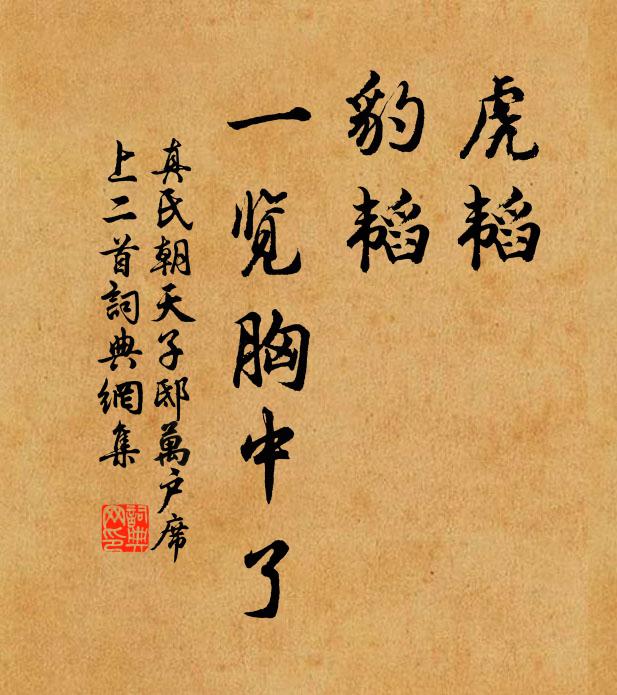 虎韬
豹韬
一览胸中了
真氏朝天子邸萬户席
上二首詞典網集
詞典
网印